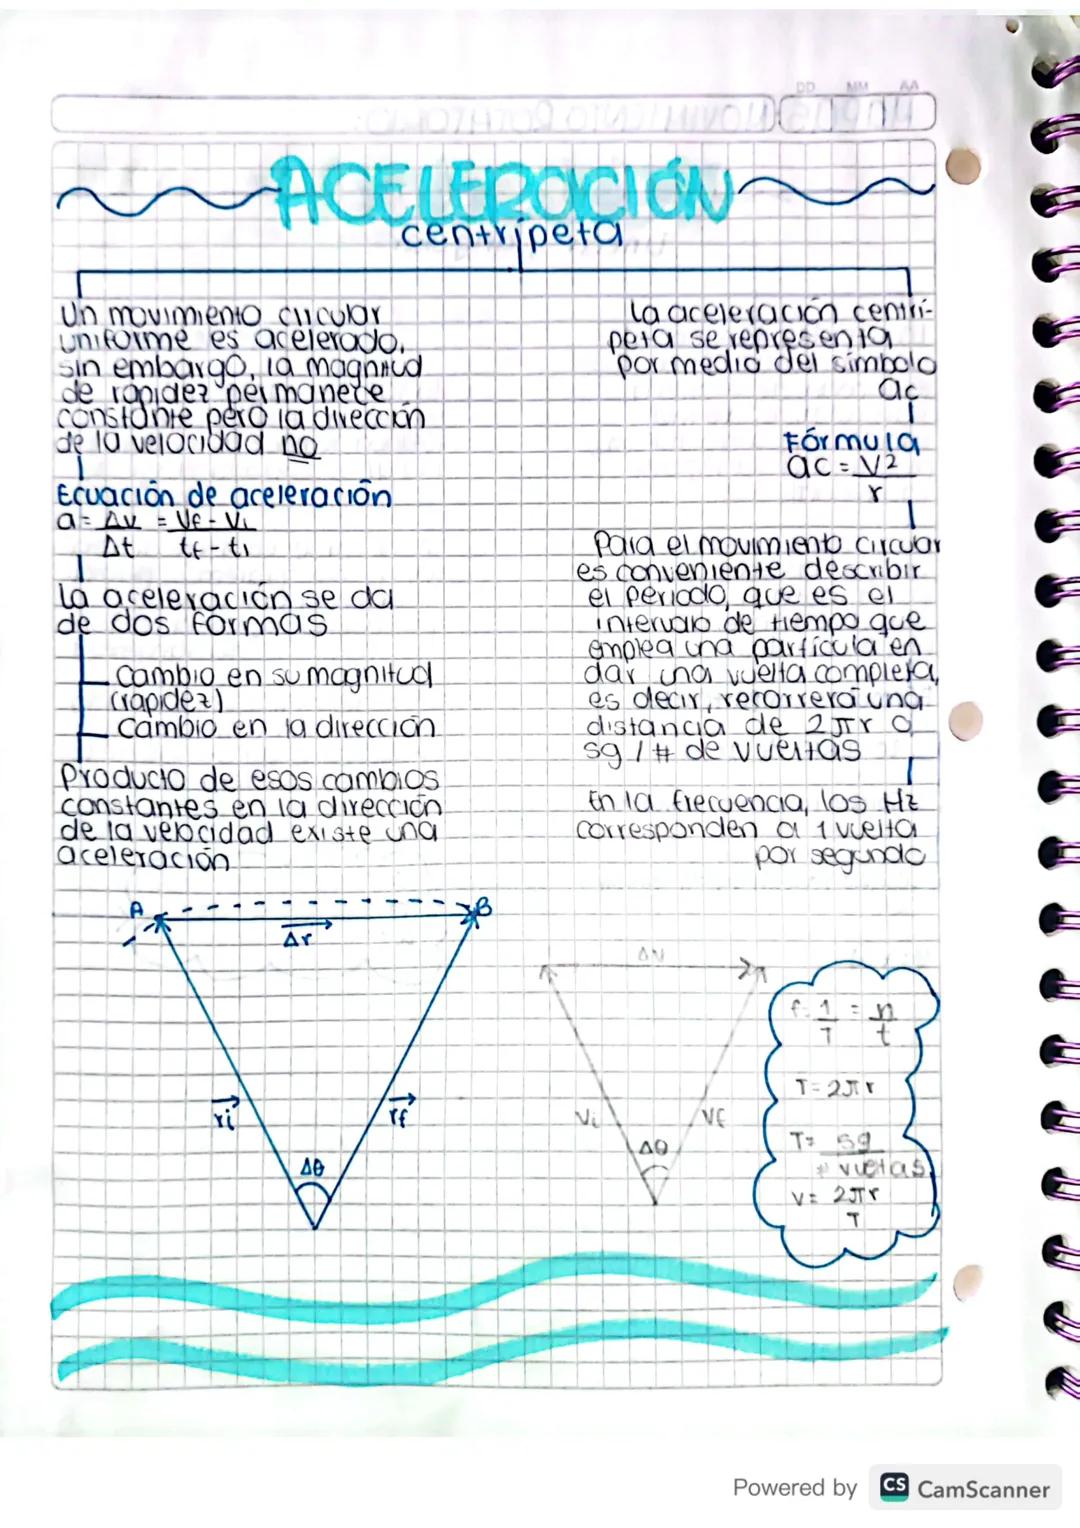 DD MM AA
ACELERACIÓN
centrípeta
Un movimiento circular
uniforme es acelerado,
sin embargo, la magnitud
de rapidez permanece
constante pero la dirección
de la velocidad no
Ecuación de aceleración
a = Δv = Vf - Vi
Δt tf - ti
La aceleración se da
de dos formas
Cambio en su magnitud
(rapidez)
Cambio en la dirección
Producto de esos cambios
constantes en la dirección
de la velocidad existe una
aceleración
La aceleración centrí-
peta se representa
por medio del símbolo
ac
Fórmula
ac = V²
r
Para el movimiento circular
es conveniente describir
el periodo, que es el
intervalo de tiempo que
emplea una partícula en
dar una vuelta completa,
es decir, recorrerá una
distancia de 2πr o
sg / # de vueltas
En la frecuencia, los Hz
corresponden a 1 vuelta
por segundo
A B
Δr
ri rf
Δθ
ΔV
Vi Vf
Δθ
f = 1 = n
T t
T = 2πr
T = sg
# vueltas
V = 2πr
T
Powered by CS CamScanner